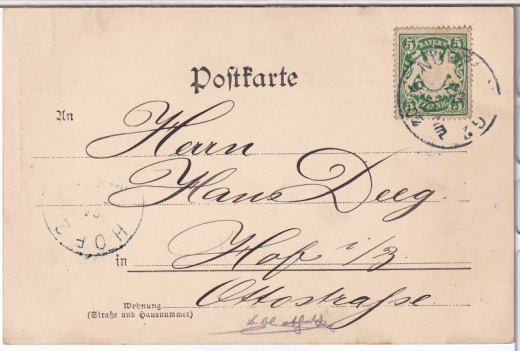 5 BAYERN 5
5 PFENNIG 5
NÜR
Postkarte
An
Herrn
Hans Deeg.
HOF
in Hof i/B.
Ottostraße
Wohnung
(Straße und Hausnummer)